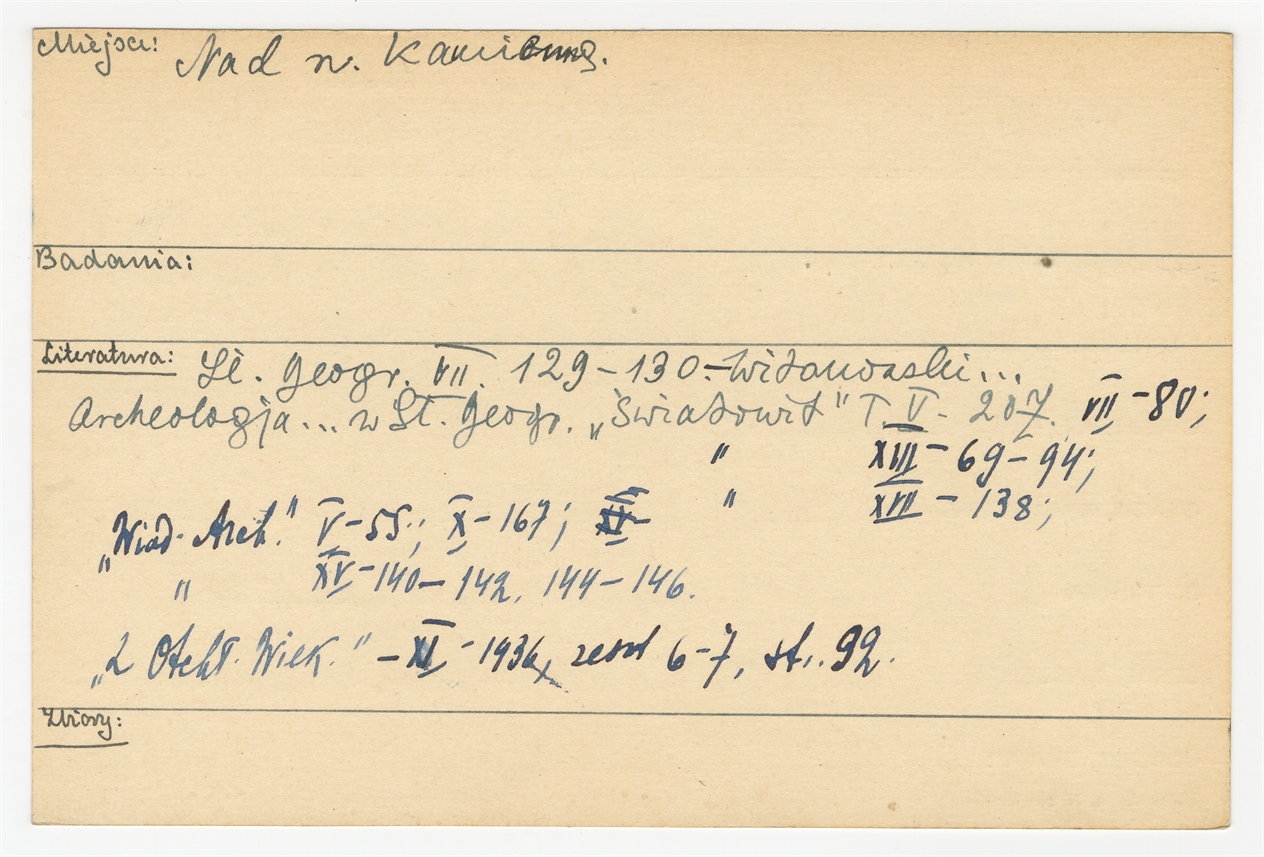 Miejsce: Nad r. Kamienną.
Badania:
Literatura: Sł. Geogr. VII. 129–130.–Witanowski...
Archeologja... w Sł. Geogr. „Światowit" T V - 207. VII – 80;
" XIII – 69–94;
" XVII – 138;
„Wiad. Arch." V – 55; X – 167;
" XV – 140–142, 144–146.
„Z Otchł. Wiek." – XI – 1936, zeszt 6–7, st. 92.
Zbiory: